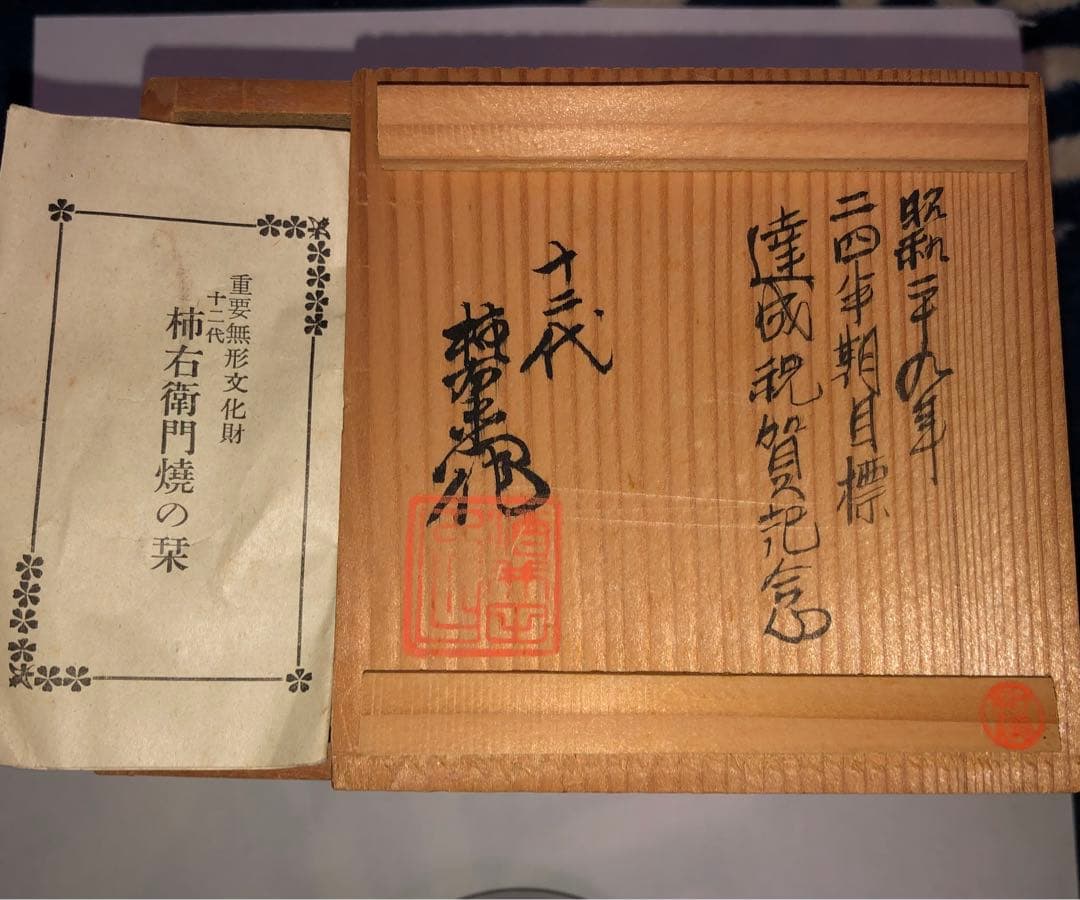 昭和二十九年
二四半期目標
達成祝賀記念
十二代
柿右衛門作
重要無形文化財
十二代
柿右衛門燒の栞